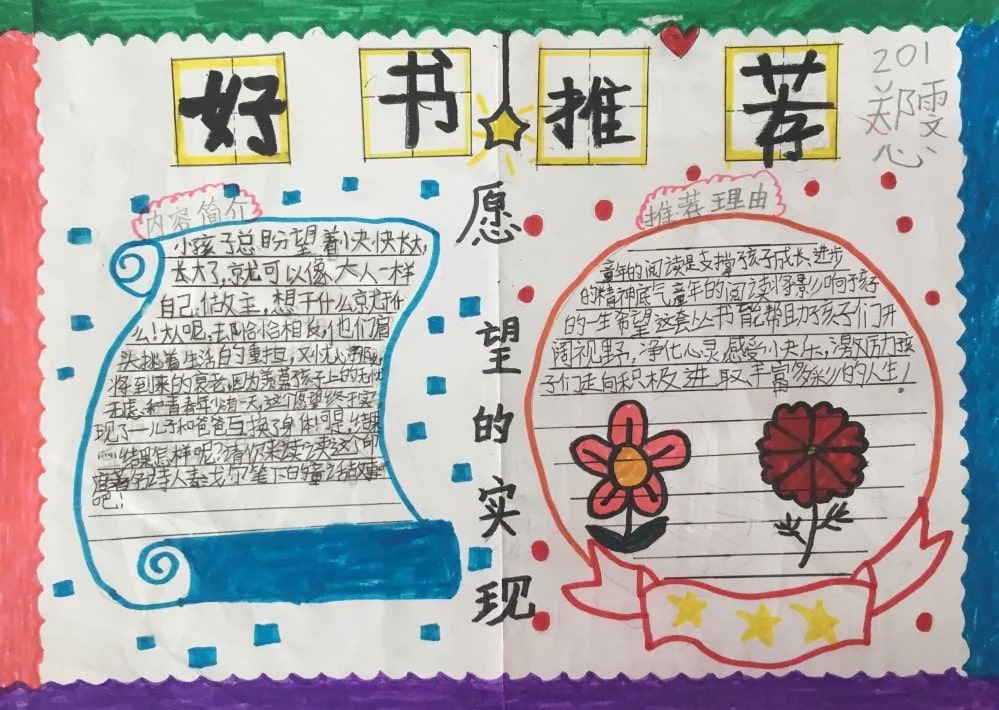 好书推荐
201
郑雯
心
愿望的实现
内容简介
小孩子总盼望着快快长大,
长大了,就可以像大人一样
自己做主,想干什么就干什
么!大人呢,却恰恰相反,他们肩
头挑着生活的重担,又忧心
将到来的衰老,因为羡慕孩子的无忧
无虑和青春年少。有一天,这个愿望终于实
现了—儿子和爸爸互换了身体!可是,结
结果怎样呢?请你来读一读这个印
诗人泰戈尔笔下的童话故事
吧!
推荐理由
童年的阅读是支撑孩子成长、进步
的精神底气,童年的阅读将影响孩子
的一生希望这套丛书能帮助孩子们开
阔视野,净化心灵感受快乐,激励孩
子们走向积极进取、丰富多彩的人生!